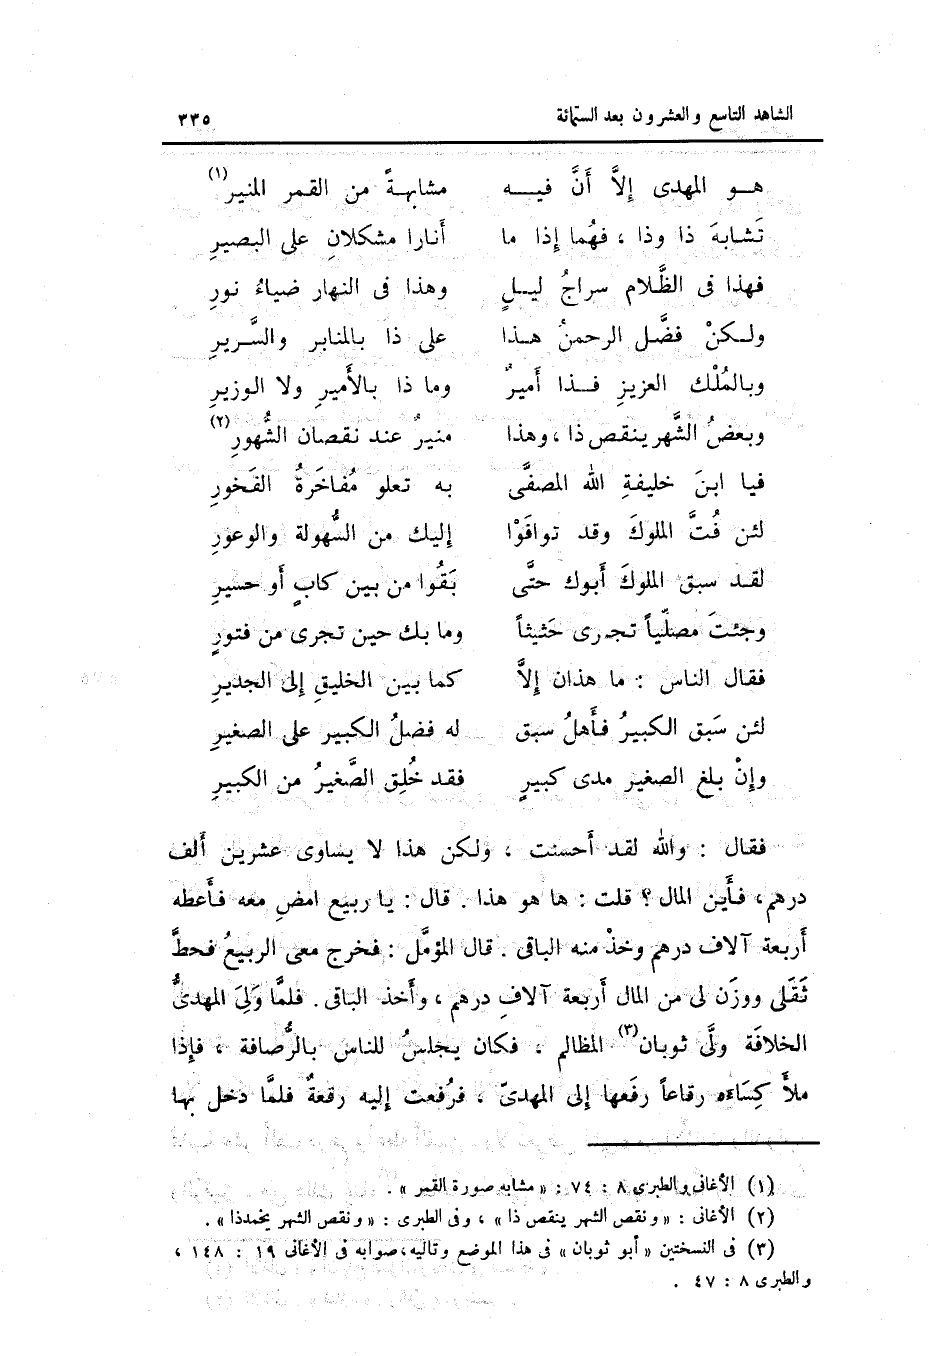 الشاهد التاسع والعشرون بعد الستمائة ٣٣٥
هو المهدى إلاَّ أنَّ فيه مشابهةً من القمر المنير(١)
تَشابهَ ذا وذا ، فهُما إذا ما أنارا مشكلانِ على البصيرِ
فهذا فى الظَّلام سراجُ ليلٍ وهذا فى النهار ضياءُ نورِ
ولكنْ فضَّل الرحمنُ هذا على ذا بالمنابر والسَّريرِ
وبالمُلْك العزيزِ فذا أميرٌ وما ذا بالأميرِ ولا الوزيرِ
وبعضُ الشَّهر ينقص ذا ، وهذا منيرٌ عند نقصان الشُّهورِ(٢)
فيا ابنَ خليفةِ الله المصفَّى به تعلو مُفاخَرةُ الفَخورِ
لئن فُتَّ الملوكَ وقد توافَوْا إليك من السُّهولة والوعورِ
لقد سبق الملوكَ أبوك حتَّى بَقُوا من بين كابٍ أو حسيرِ
وجئتَ مصلّياً تجرى حَثيثاً وما بك حين تجرى من فتورِ
فقال الناس : ما هذان إلاَّ كما بين الخليقِ إلى الجديرِ
لئن سَبق الكبيرُ فأهلُ سبق له فضلُ الكبير على الصغيرِ
وإنْ بلغ الصغير مدى كبيرٍ فقد خُلِق الصَّغيرُ من الكبيرِ
فقال : والله لقد أحسنت ، ولكن هذا لا يساوى عشرين ألف
درهم، فأين المال ؟ قلت : ها هو هذا . قال : يا ربيع امضِ معه فأعطه
أربعة آلاف درهم وخذْ منه الباقى . قال المؤمَّل : فخرج معى الربيعُ فحطَّ
ثَقَلى ووزَن لى من المال أربعة آلافِ درهم ، وأخذ الباقى . فلمَّا وَلِىَ المهدىُّ
الخلافَة ولَّى ثوبان(٣) المظالم ، فكان يجلسُ للناس بالرُّصافة ، فإذا
ملأَ كِسَاءَه رقاعاً رفَعها إلى المهدىّ ، فرُفعت إليه رقعةٌ فلمَّا دخل بها
(١) الأغانى والطبرى ٨ : ٧٤ : « مشابه صورة القمر » .
(٢) الأغانى : « ونقص الشهر ينقص ذا » ، وفى الطبرى : « ونقص الشهر يخمدذا » .
(٣) فى النسختين « أبو ثوبان » فى هذا الموضع وتاليه، صوابه فى الأغانى ١٩ : ١٤٨ ،
والطبرى ٨ : ٤٧ .